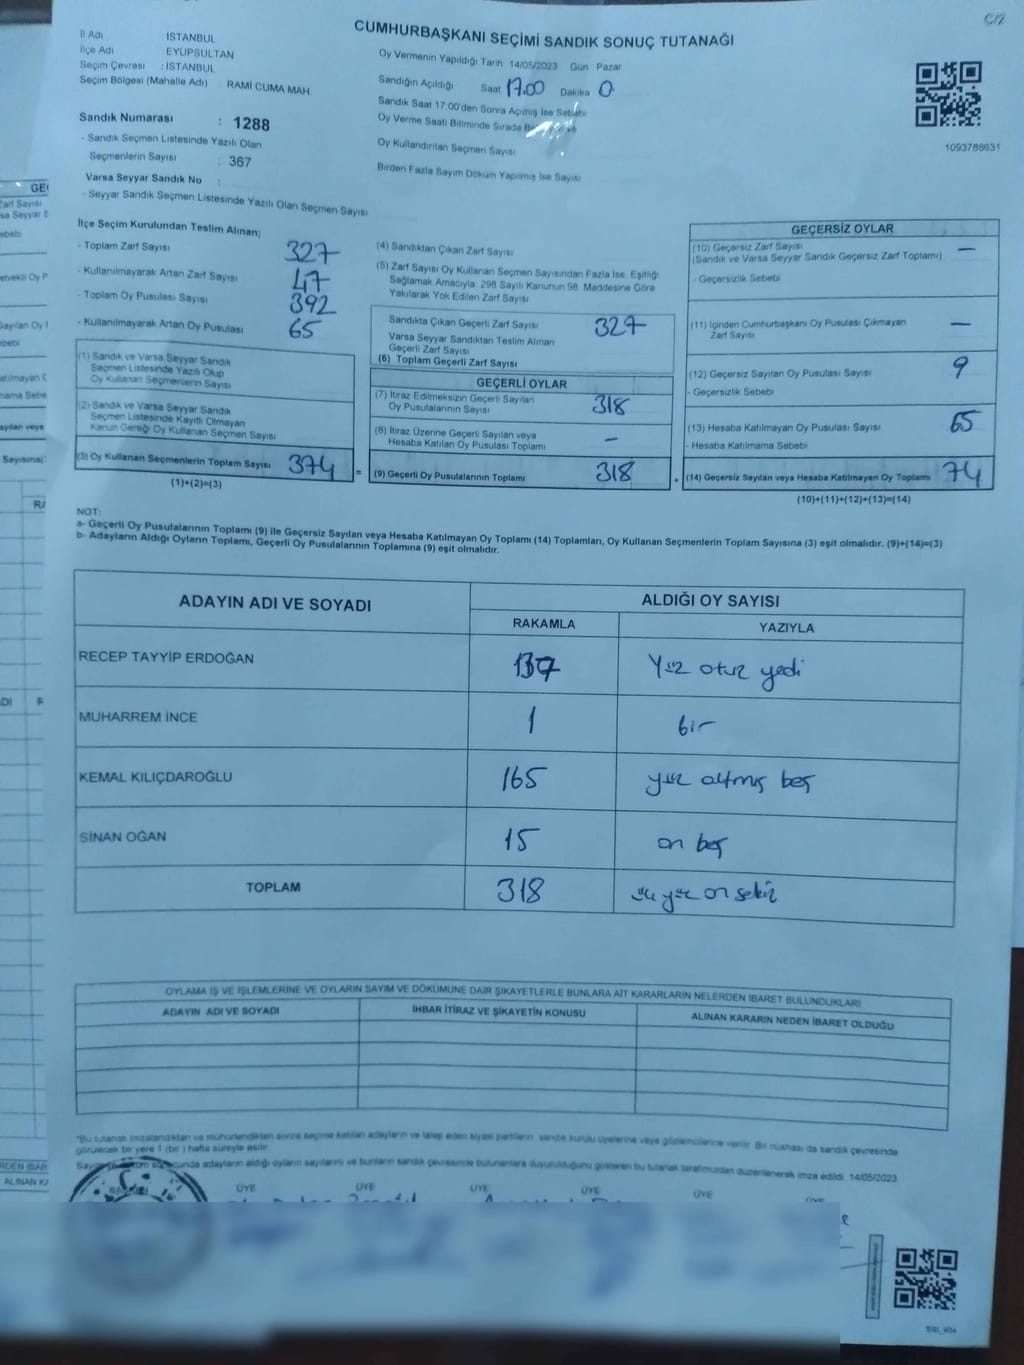 C/2
CUMHURBAŞKANI SEÇİMİ SANDIK SONUÇ TUTANAĞI
İl Adı : İSTANBUL
İlçe Adı : EYÜPSULTAN
Seçim Çevresi : İSTANBUL
Seçim Bölgesi (Mahalle Adı) RAMİ CUMA MAH
Sandık Numarası : 1288
- Sandık Seçmen Listesinde Yazılı Olan
Seçmenlerin Sayısı : 367
Varsa Seyyar Sandık No :
- Seyyar Sandık Seçmen Listesinde Yazılı Olan Seçmen Sayısı
Oy Vermenin Yapıldığı Tarih 14/05/2023 Gün Pazar
Sandığın Açıldığı Saat 17.00 Dakika 0
Sandık Saat 17:00'den Sonra Açılmış İse Sebebi
Oy Verme Saati Bitiminde Sırada
Oy Kullandırılan Seçmen Sayısı
Birden Fazla Sayım Döküm Yapılmış İse Sayısı
1093788631
İlçe Seçim Kurulundan Teslim Alınan;
- Toplam Zarf Sayısı 327
- Kullanılmayarak Artan Zarf Sayısı 47
- Toplam Oy Pusulası Sayısı 392
- Kullanılmayarak Artan Oy Pusulası 65
(1) Sandık ve Varsa Seyyar Sandık
Seçmen Listesinde Yazılı Olup
Oy Kullanan Seçmenlerin Sayısı
(2) Sandık ve Varsa Seyyar Sandık
Seçmen Listesinde Kayıtlı Olmayan
Kanun Gereği Oy Kullanan Seçmen Sayısı
(3) Oy Kullanan Seçmenlerin Toplam Sayısı 374 =
(1)+(2)=(3)
(4) Sandıktan Çıkan Zarf Sayısı
(5) Zarf Sayısı Oy Kullanan Seçmen Sayısından Fazla İse, Eşitliği
Sağlamak Amacıyla, 298 Sayılı Kanunun 98. Maddesine Göre
Yakılarak Yok Edilen Zarf Sayısı
Sandıkta Çıkan Geçerli Zarf Sayısı 327
Varsa Seyyar Sandıktan Teslim Alınan
Geçerli Zarf Sayısı
(6) Toplam Geçerli Zarf Sayısı
GEÇERLİ OYLAR
(7) İtiraz Edilmeksizin Geçerli Sayılan
Oy Pusulalarının Sayısı 318
(8) İtiraz Üzerine Geçerli Sayılan veya
Hesaba Katılan Oy Pusulası Toplamı -
(9) Geçerli Oy Pusulalarının Toplamı 318 +
GEÇERSİZ OYLAR
(10) Geçersiz Zarf Sayısı -
(Sandık ve Varsa Seyyar Sandık Geçersiz Zarf Toplamı)
- Geçersizlik Sebebi
(11) İçinden Cumhurbaşkanı Oy Pusulası Çıkmayan
Zarf Sayısı -
(12) Geçersiz Sayılan Oy Pusulası Sayısı 9
- Geçersizlik Sebebi
(13) Hesaba Katılmayan Oy Pusulası Sayısı 65
- Hesaba Katılmama Sebebi
(14) Geçersiz Sayılan veya Hesaba Katılmayan Oy Toplamı 74
(10)+(11)+(12)+(13)=(14)
NOT:
a- Geçerli Oy Pusulalarının Toplamı (9) ile Geçersiz Sayılan veya Hesaba Katılmayan Oy Toplamı (14) Toplamları, Oy Kullanan Seçmenlerin Toplam Sayısına (3) eşit olmalıdır. (9)+(14)=(3)
b- Adayların Aldığı Oyların Toplamı, Geçerli Oy Pusulalarının Toplamına (9) eşit olmalıdır.
ADAYIN ADI VE SOYADI ALDIĞI OY SAYISI
RAKAMLA YAZIYLA
RECEP TAYYİP ERDOĞAN 137 Yüz otuz yedi
MUHARREM İNCE 1 bir
KEMAL KILIÇDAROĞLU 165 yüz altmış beş
SİNAN OĞAN 15 on beş
TOPLAM 318 üç yüz on sekiz
OYLAMA İŞ VE İŞLEMLERİNE VE OYLARIN SAYIM VE DÖKÜMÜNE DAİR ŞİKAYETLERLE BUNLARA AİT KARARLARIN NELERDEN İBARET BULUNDUKLARI
ADAYIN ADI VE SOYADI İHBAR İTİRAZ VE ŞİKAYETİN KONUSU ALINAN KARARIN NEDEN İBARET OLDUĞU
*Bu tutanak imzalandıktan ve mühürlendikten sonra seçime katılan adayların ve talep eden siyasi partilerin sandık kurulu üyelerine veya gözlemcilerine verilir. Bir nüshası da sandık çevresinde
görülecek bir yere 1 (bir) hafta süreyle asılır.
sonucunda adayların aldığı oyların sayılarını ve bunların sandık çevresinde bulunanlara duyurulduğunu gösteren bu tutanak tarafımızdan düzenlenerek imza edildi. 14/05/2023
BAŞKAN ÜYE ÜYE ÜYE ÜYE ÜYE ÜYE